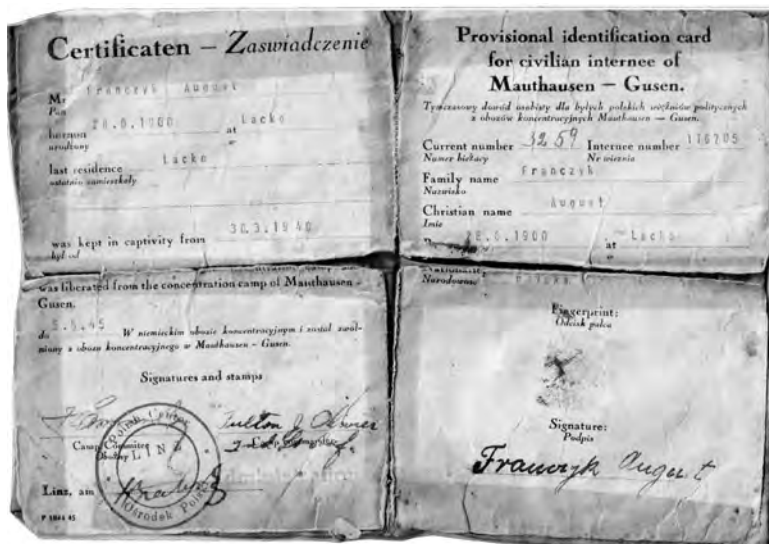 Certificaten – Zaświadczenie
Mr Franczyk August
Pan
28.6.1900 at Lacko
urodzony w
last residence Lacko
ostatnio zamieszkały
was kept in captivity from 30.3.1940
był od
was liberated from the concentration camp of Mauthausen –
Gusen.
do 5.5.45 W niemieckim obozie koncentracyjnym i został zwol-
niony z obozu koncentracyjnego w Mauthausen – Gusen.
Signatures and stamps
Camp Committee
Polish Center
LINZ
Ośrodek Polski
Linz, am
Provisional identification card
for civilian internee of
Mauthausen – Gusen.
Tymczasowy dowód osobisty dla byłych polskich więźniów politycznych
z obozów koncentracyjnych Mauthausen – Gusen.
Current number 3259 Internee number 116705
Numer bieżący Nr więznia
Family name Franczyk
Nazwisko
Christian name August
Imię
28.6.1900 at Lacko
w
Narodowość
Fingerprint:
Odcisk palca
Signature:
Podpis
Franczyk August